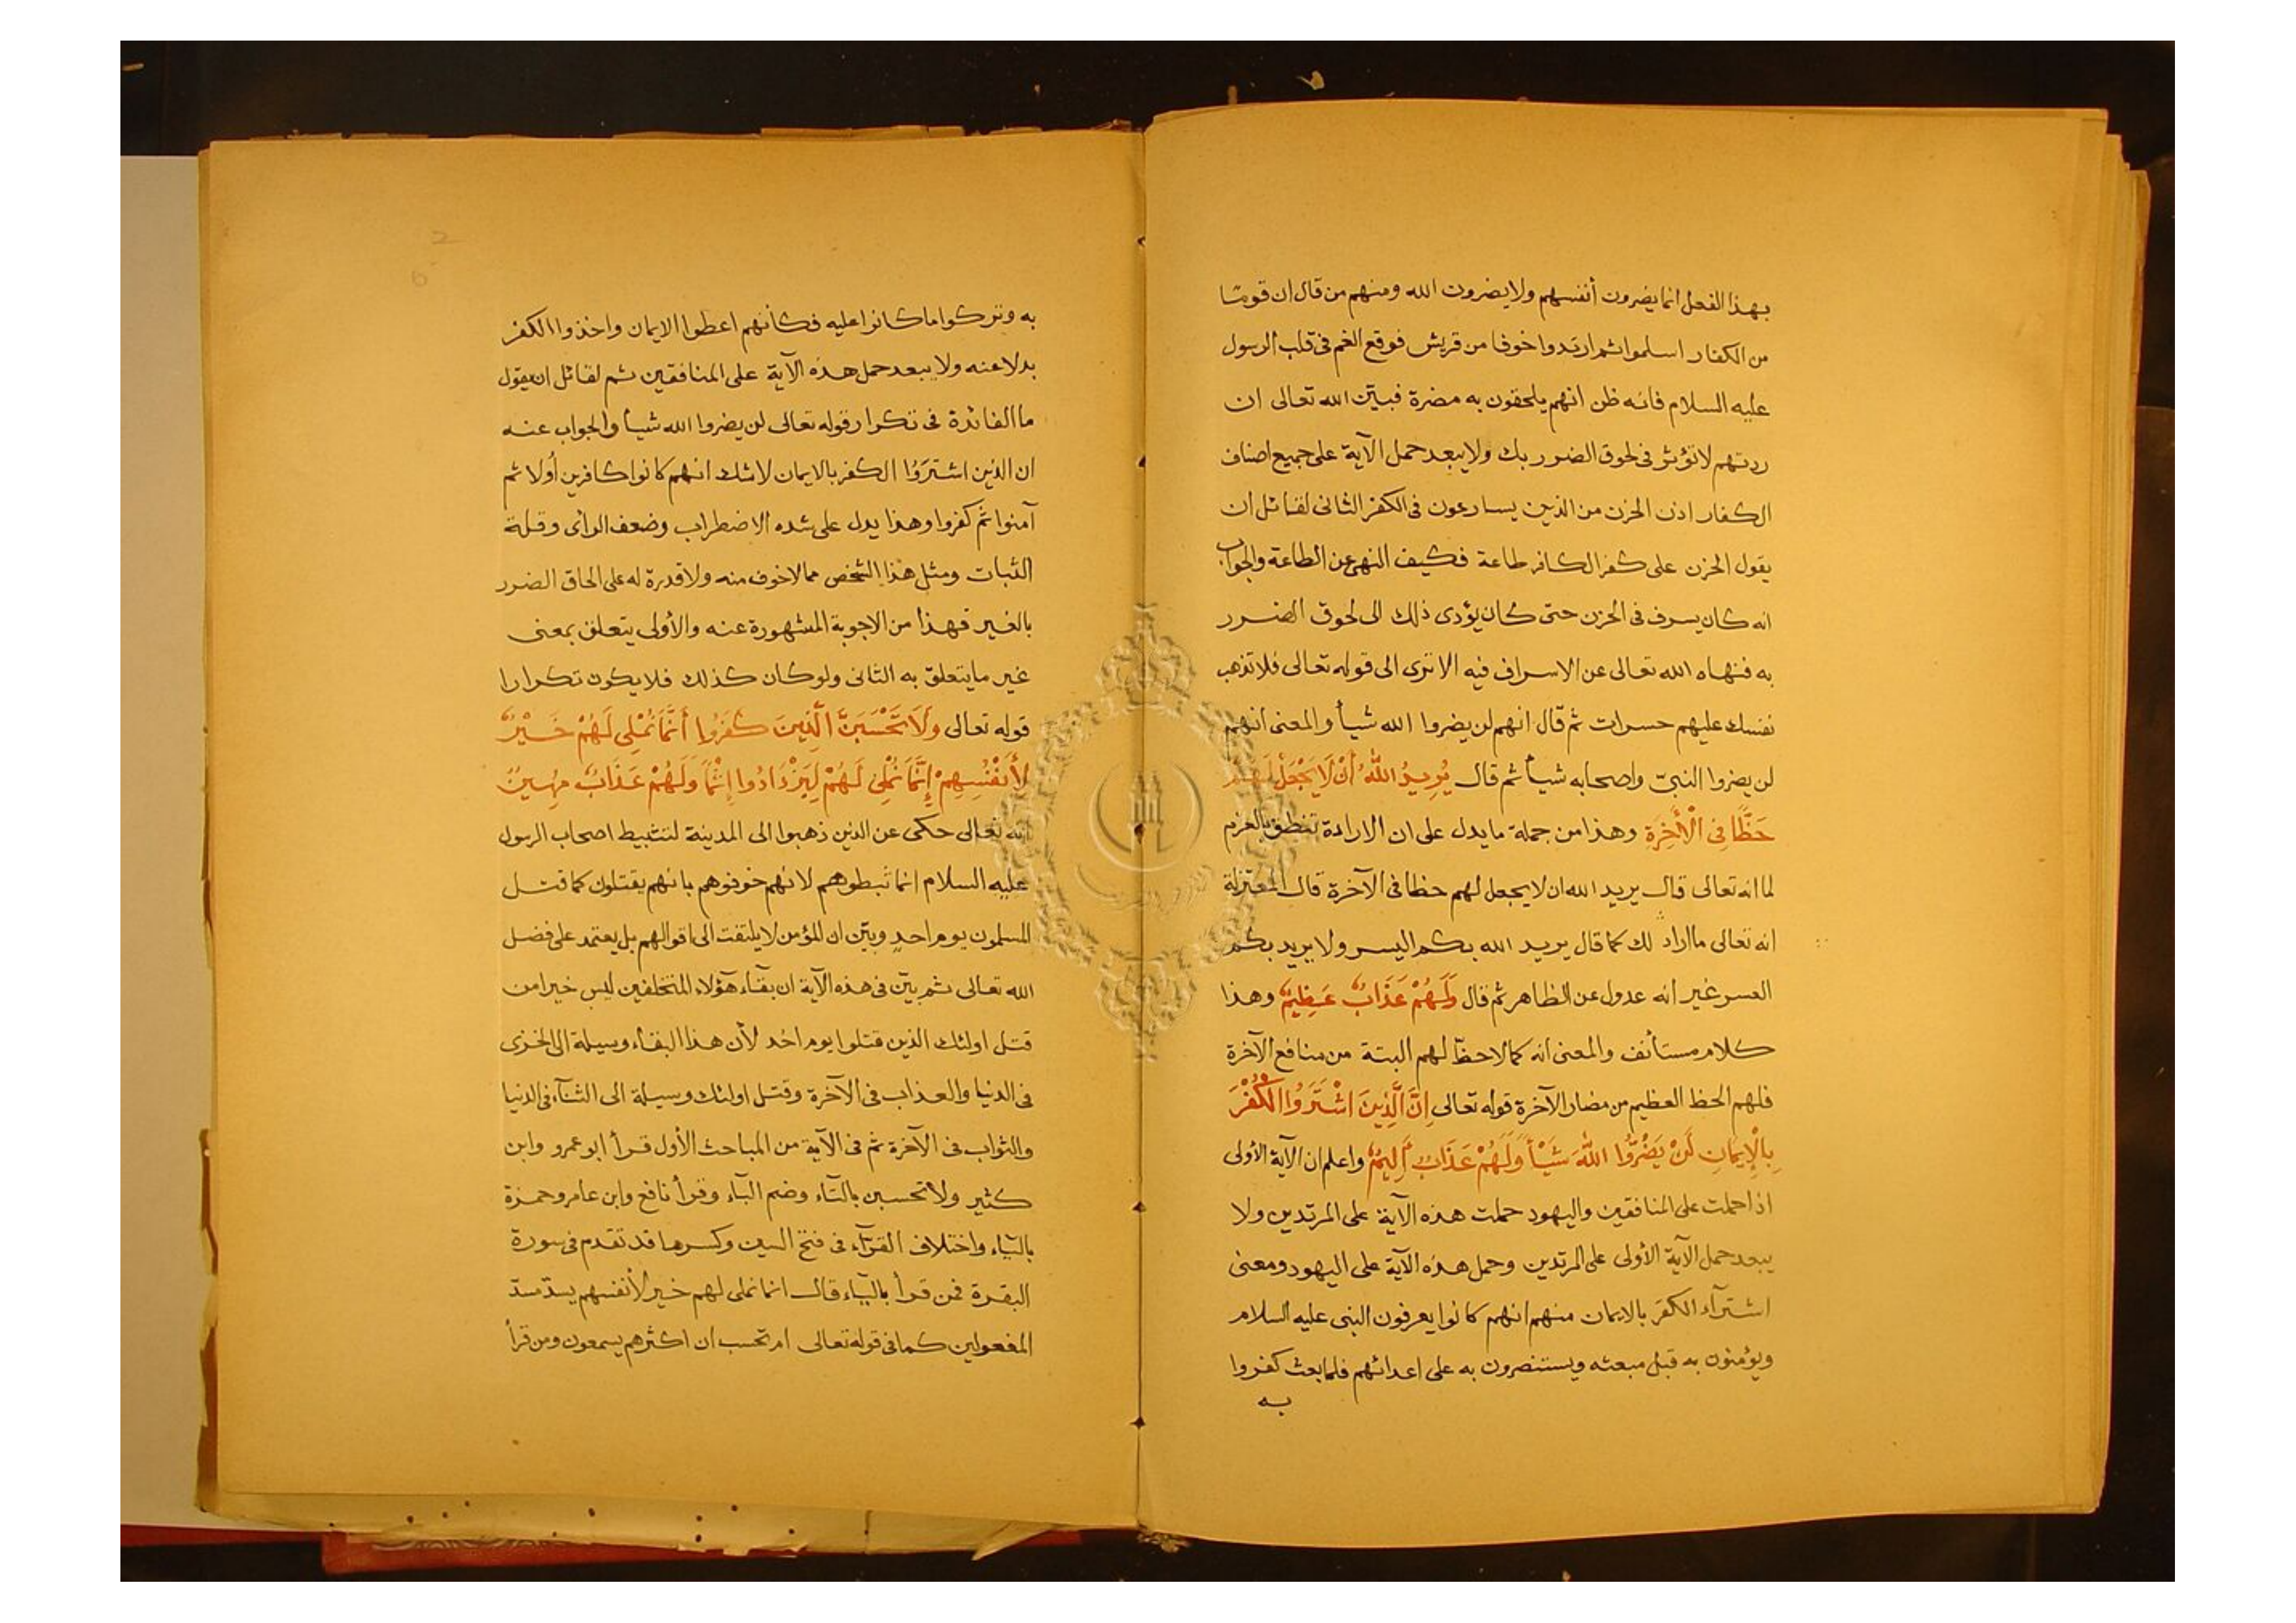 بهذا الفعل انما يضرون أنفسهم ولا يضرون الله ومنهم من قال ان قوما
من الكفار اسلموا ثم ارتدوا خوفا من قريش فوقع الغم فى قلب الرسول
عليه السلام فانه ظن انهم يلحقون به مضرة فبين الله تعالى ان
ردتهم لا تؤثر فى لحوق الضرر بك ولا يبعد حمل الآية على جميع اصناف
الكفار اذن الحزن من الذين يسارعون فى الكفر الثانى لقائل ان
يقول الحزن على كفر الكافر طاعة فكيف النهى عن الطاعة والجواب
انه كان يسرف فى الحزن حتى كان يؤدى ذلك الى لحوق الضرر
به فنهاه الله تعالى عن الاسراف فيه الا ترى الى قوله تعالى فلا تذهب
نفسك عليهم حسرات ثم قال انهم لن يضروا الله شيأ والمعنى انهم
لن يضروا النبىّ واصحابه شيأ ثم قال يُرِيدُ اللهُ أَنْ لَا يَجْعَلَ لَهُمْ
حَظًّا فِى الْأَخِرَةِ وهذا من جملة ما يدل على ان الارادة تتعلق بالعدم
لما انه تعالى قال يريد الله ان لا يجعل لهم حظا فى الآخرة قال المعتزلة
انه تعالى ما اراد لك كما قال يريد الله بكم اليسر ولا يريد بكم
العسر غير انه عدول عن الظاهر ثم قال وَلَهُمْ عَذَابٌ عَظِيمٌ وهذا
كلام مستأنف والمعنى انه كما لا حظّ لهم البتة من منافع الآخرة
فلهم الحظ العظيم من مضار الآخرة قوله تعالى اِنَّ الَّذِينَ اشْتَرَوُا الْكُفْرَ
بِالْإِيمَانِ لَنْ يَضُرُّوا اللهَ شَيْأً وَلَهُمْ عَذَابٌ أَلِيمٌ واعلم ان الآية الأولى
اذا حملت على المنافقين واليهود حملت هذه الآية على المرتدين ولا
يبعد حمل الآية الأولى على المرتدين وحمل هذه الآية على اليهود ومعنى
اشترآء الكفر بالايمان منهم انهم كانوا يعرفون النبى عليه السلام
ويؤمنون به قبل مبعثه ويستنصرون به على اعدائهم فلما بعث كفروا
به
به وتركوا ما كانوا عليه فكأنهم اعطوا الايمان واخذوا الكفر
بدلا عنه ولا يبعد حمل هذه الآية على المنافقين ثم لقائل ان يقول
ما الفائدة فى تكرار قوله تعالى لن يضروا الله شيأ والجواب عنه
ان الذين اشتَرَوُا الكفر بالايمان لا شك انهم كانوا كافرين أولا ثم
آمنوا ثم كفروا وهذا يدل على شده الاضطراب وضعف الرأى وقلة
الثبات ومثل هذا الشخص مما لا خوف منه ولا قدرة له على الحاق الضرر
بالغير فهذا من الاجوبة المشهورة عنه والأولى يتعلق بمعنى
غير ما يتعلق به الثانى ولو كان كذلك فلا يكون تكرارا
قوله تعالى وَلَا تَحْسَبَنَّ الَّذِينَ كَفَرُوا أَنَّمَا نُمْلِى لَهُمْ خَيْرٌ
لِأَنْفُسِهِمْ إِنَّمَا نُمْلِى لَهُمْ لِيَزْدَادُوا إِثْمًا وَلَهُمْ عَذَابٌ مُهِينٌ
انه تعالى حكى عن الذين ذهبوا الى المدينة لتثبيط اصحاب الرسول
عليه السلام انما ثبطوهم لانهم خوفوهم بانهم يقتلون كما قتل
المسلمون يوم احدٍ وبيّن ان المؤمن لا يلتفت الى اقوالهم بل يعتمد على فضل
الله تعالى ثم بيّن فى هذه الآية ان بقآء هؤلاء المتخلفين ليس خيرا من
قتل اولئك الذين قتلوا يوم احُد لأن هذا البقاء وسيلة الى الخزى
فى الدنيا والعذاب فى الآخرة وقتل اولئك وسيلة الى الثنآء فى الدنيا
والثواب فى الآخرة ثم فى الآية من المباحث الأول قرأ ابو عمرو وابن
كثير ولا تحسبن بالتاء وضم البآء وقرأ نافع وابن عامر وحمزة
بالياء واختلاف القرآء فى فتح السين وكسرها قد تقدم فى سورة
البقرة فمن قرأ بالياء قال انما نملى لهم خير لأنفسهم يسدّ مسدّ
المفعولين كما فى قوله تعالى ام تحسب ان اكثرهم يسمعون ومن قرأ